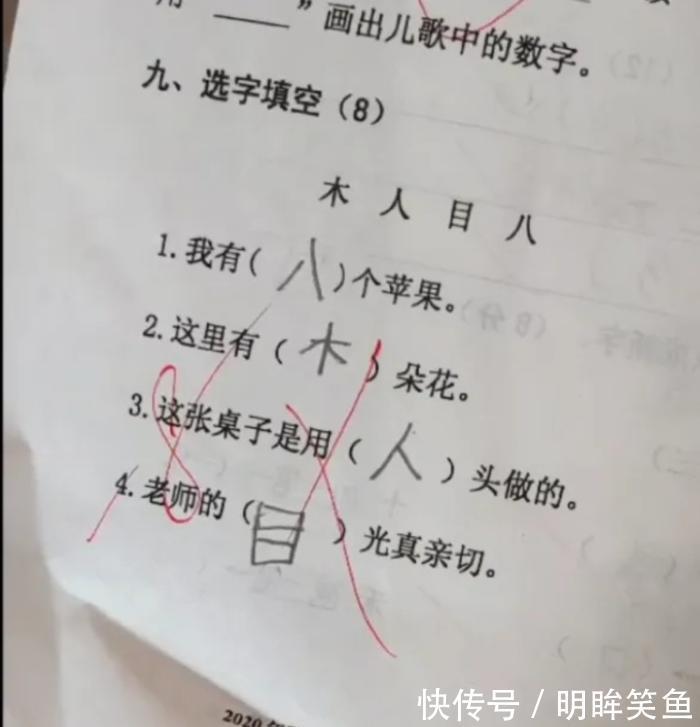 ” 画出儿歌中的数字。
九、选字填空（8）
木 人 目 八
1.我有( 八 )个苹果。
2.这里有( 木 )朵花。
3.这张桌子是用( 人 )头做的。
4.老师的( 目 )光真亲切。
2020
快传号 / 明眸笑鱼